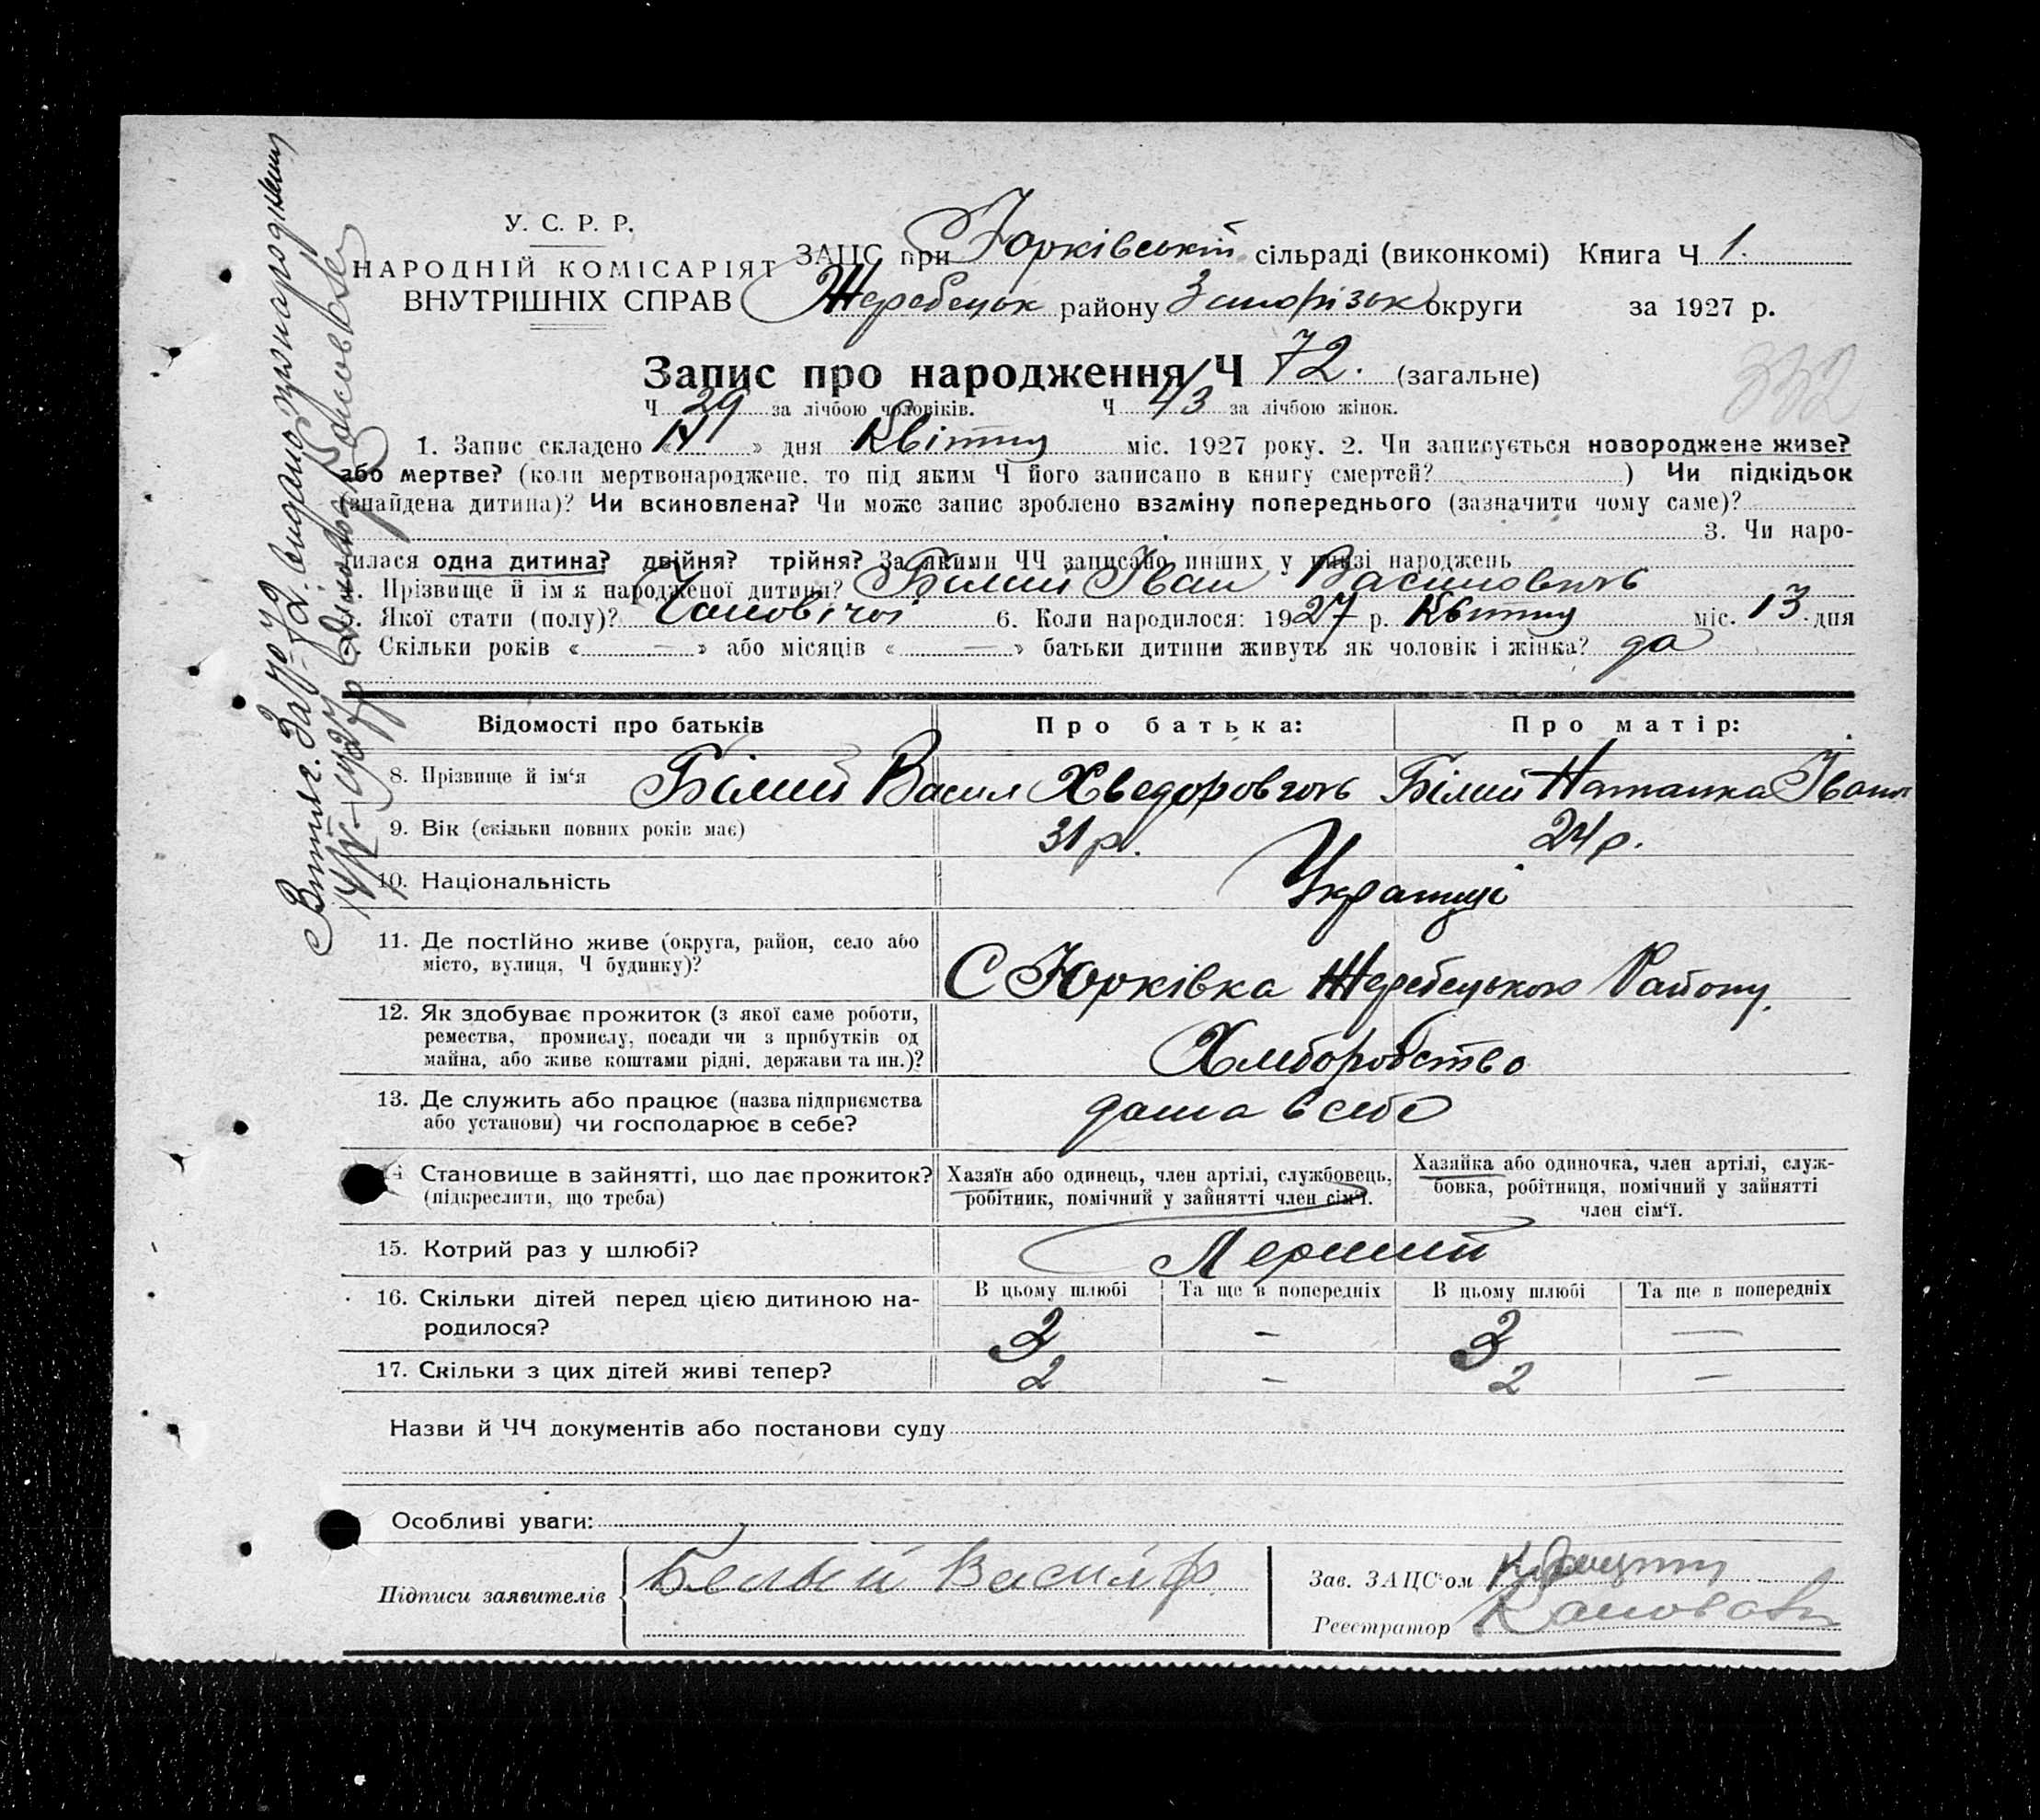 У. С. Р. Р.
НАРОДНІЙ КОМІСАРІЯТ
ВНУТРІШНІХ СПРАВ
ЗАЦС при Юрківській сільраді (виконкомі) Книга Ч 1.
Жеребецьк району Запорізьк округи за 1927 р.
Запис про народження Ч 72. (загальне)
332
Ч 29 за лічбою чоловіків. Ч 43 за лічбою жінок.
1. Запис складено « 14 » дня Квітня міс. 1927 року. 2. Чи записується новороджене живе?
або мертве? (коли мертвонароджене, то під яким Ч його записано в книгу смертей? ) Чи підкідьок
(знайдена дитина)? Чи всиновлена? Чи може запис зроблено взаміну попереднього (зазначити чому саме)?
3. Чи наро-
дилася одна дитина? двійня? трійня? За якими ЧЧ записано инших у книзі народжень
4. Прізвище й ім'я народженої дитини? Білий Іван Василовичь
5. Якої стати (полу)? Чоловічої 6. Коли народилося: 1927 р. Квітня міс. 13 дня
Скільки років « — » або місяців « — » батьки дитини живуть як чоловік і жінка? да
Відомості про батьків Про батька: Про матір:
8. Прізвище й ім'я Білий Васил Хведоровичь Білий Наталка Іванів
9. Вік (скільки повних років має) 31 р. 24 р.
10. Національність Українці
11. Де постійно живе (округа, район, село або
місто, вулиця, Ч будинку)?
С Юрківка Жеребецького Району.
12. Як здобуває прожиток (з якої саме роботи,
ремества, промислу, посади чи з прибутків од
майна, або живе коштами рідні, держави та ин.)?
Хлеборобство
13. Де служить або працює (назва підприємства
або установи) чи господарює в себе?
дома в себе
14. Становище в зайнятті, що дає прожиток?
(підкреслити, що треба)
Хазяїн або одинець, член артілі, службовець,
робітник, помічний у зайнятті член сім'ї.
Хазяйка або одиночка, член артілі, служ-
бовка, робітниця, помічний у зайнятті
член сім'ї.
15. Котрий раз у шлюбі? Перший
16. Скільки дітей перед цією дитиною на-
родилося?
В цьому шлюбі Та ще в попередніх В цьому шлюбі Та ще в попередніх
3 — 3 —
17. Скільки з цих дітей живі тепер? 2 — 2 —
Назви й ЧЧ документів або постанови суду
Особливі уваги:
Підписи заявителів Белый Васил Ф.
Зав. ЗАЦС'ом
Реєстратор
Витяг. За Ч 72. видано